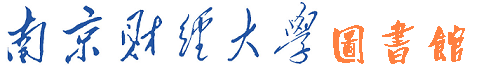 南京财经大學圖書館